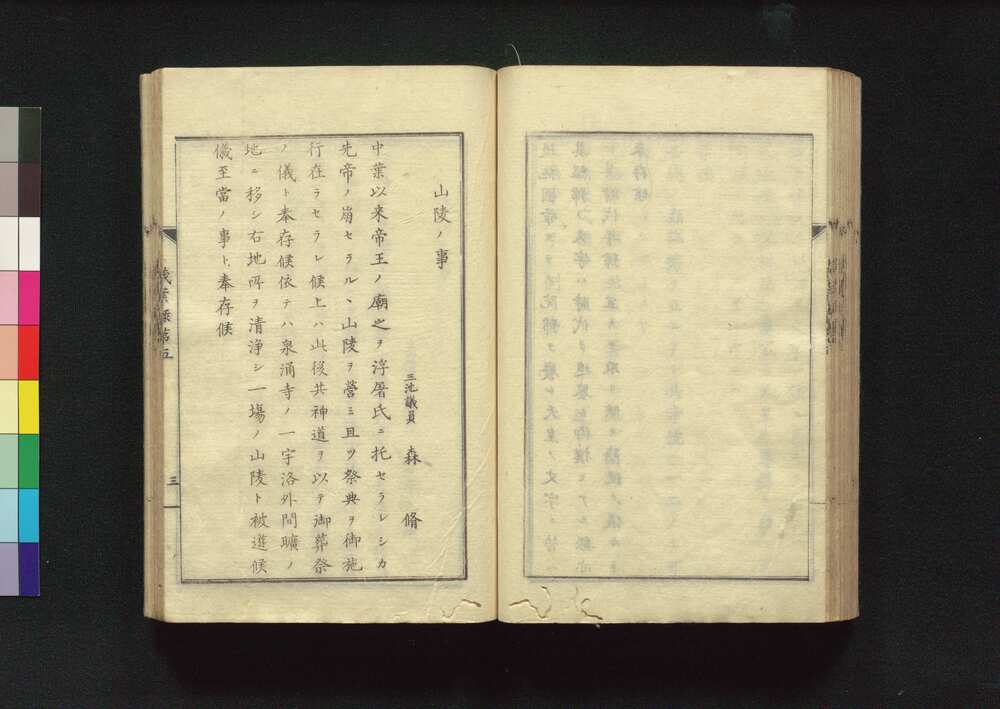 山陵ノ事
三池議員 森 脩
中葉以来帝王ノ廟之ヲ浮屠氏ニ托セラレシカ
先帝ノ崩セラルヽ山陵ヲ営ミ且ツ祭典ヲ御施
行在ラセラレ候上ハ此後共神道ヲ以テ御葬祭
ノ儀ト奉存候依テハ泉涌寺ノ一宇洛外間曠ノ
地ニ移シ右地所ヲ清浄シ一場ノ山陵ト被遊候
儀至當ノ事ト奉存候
三